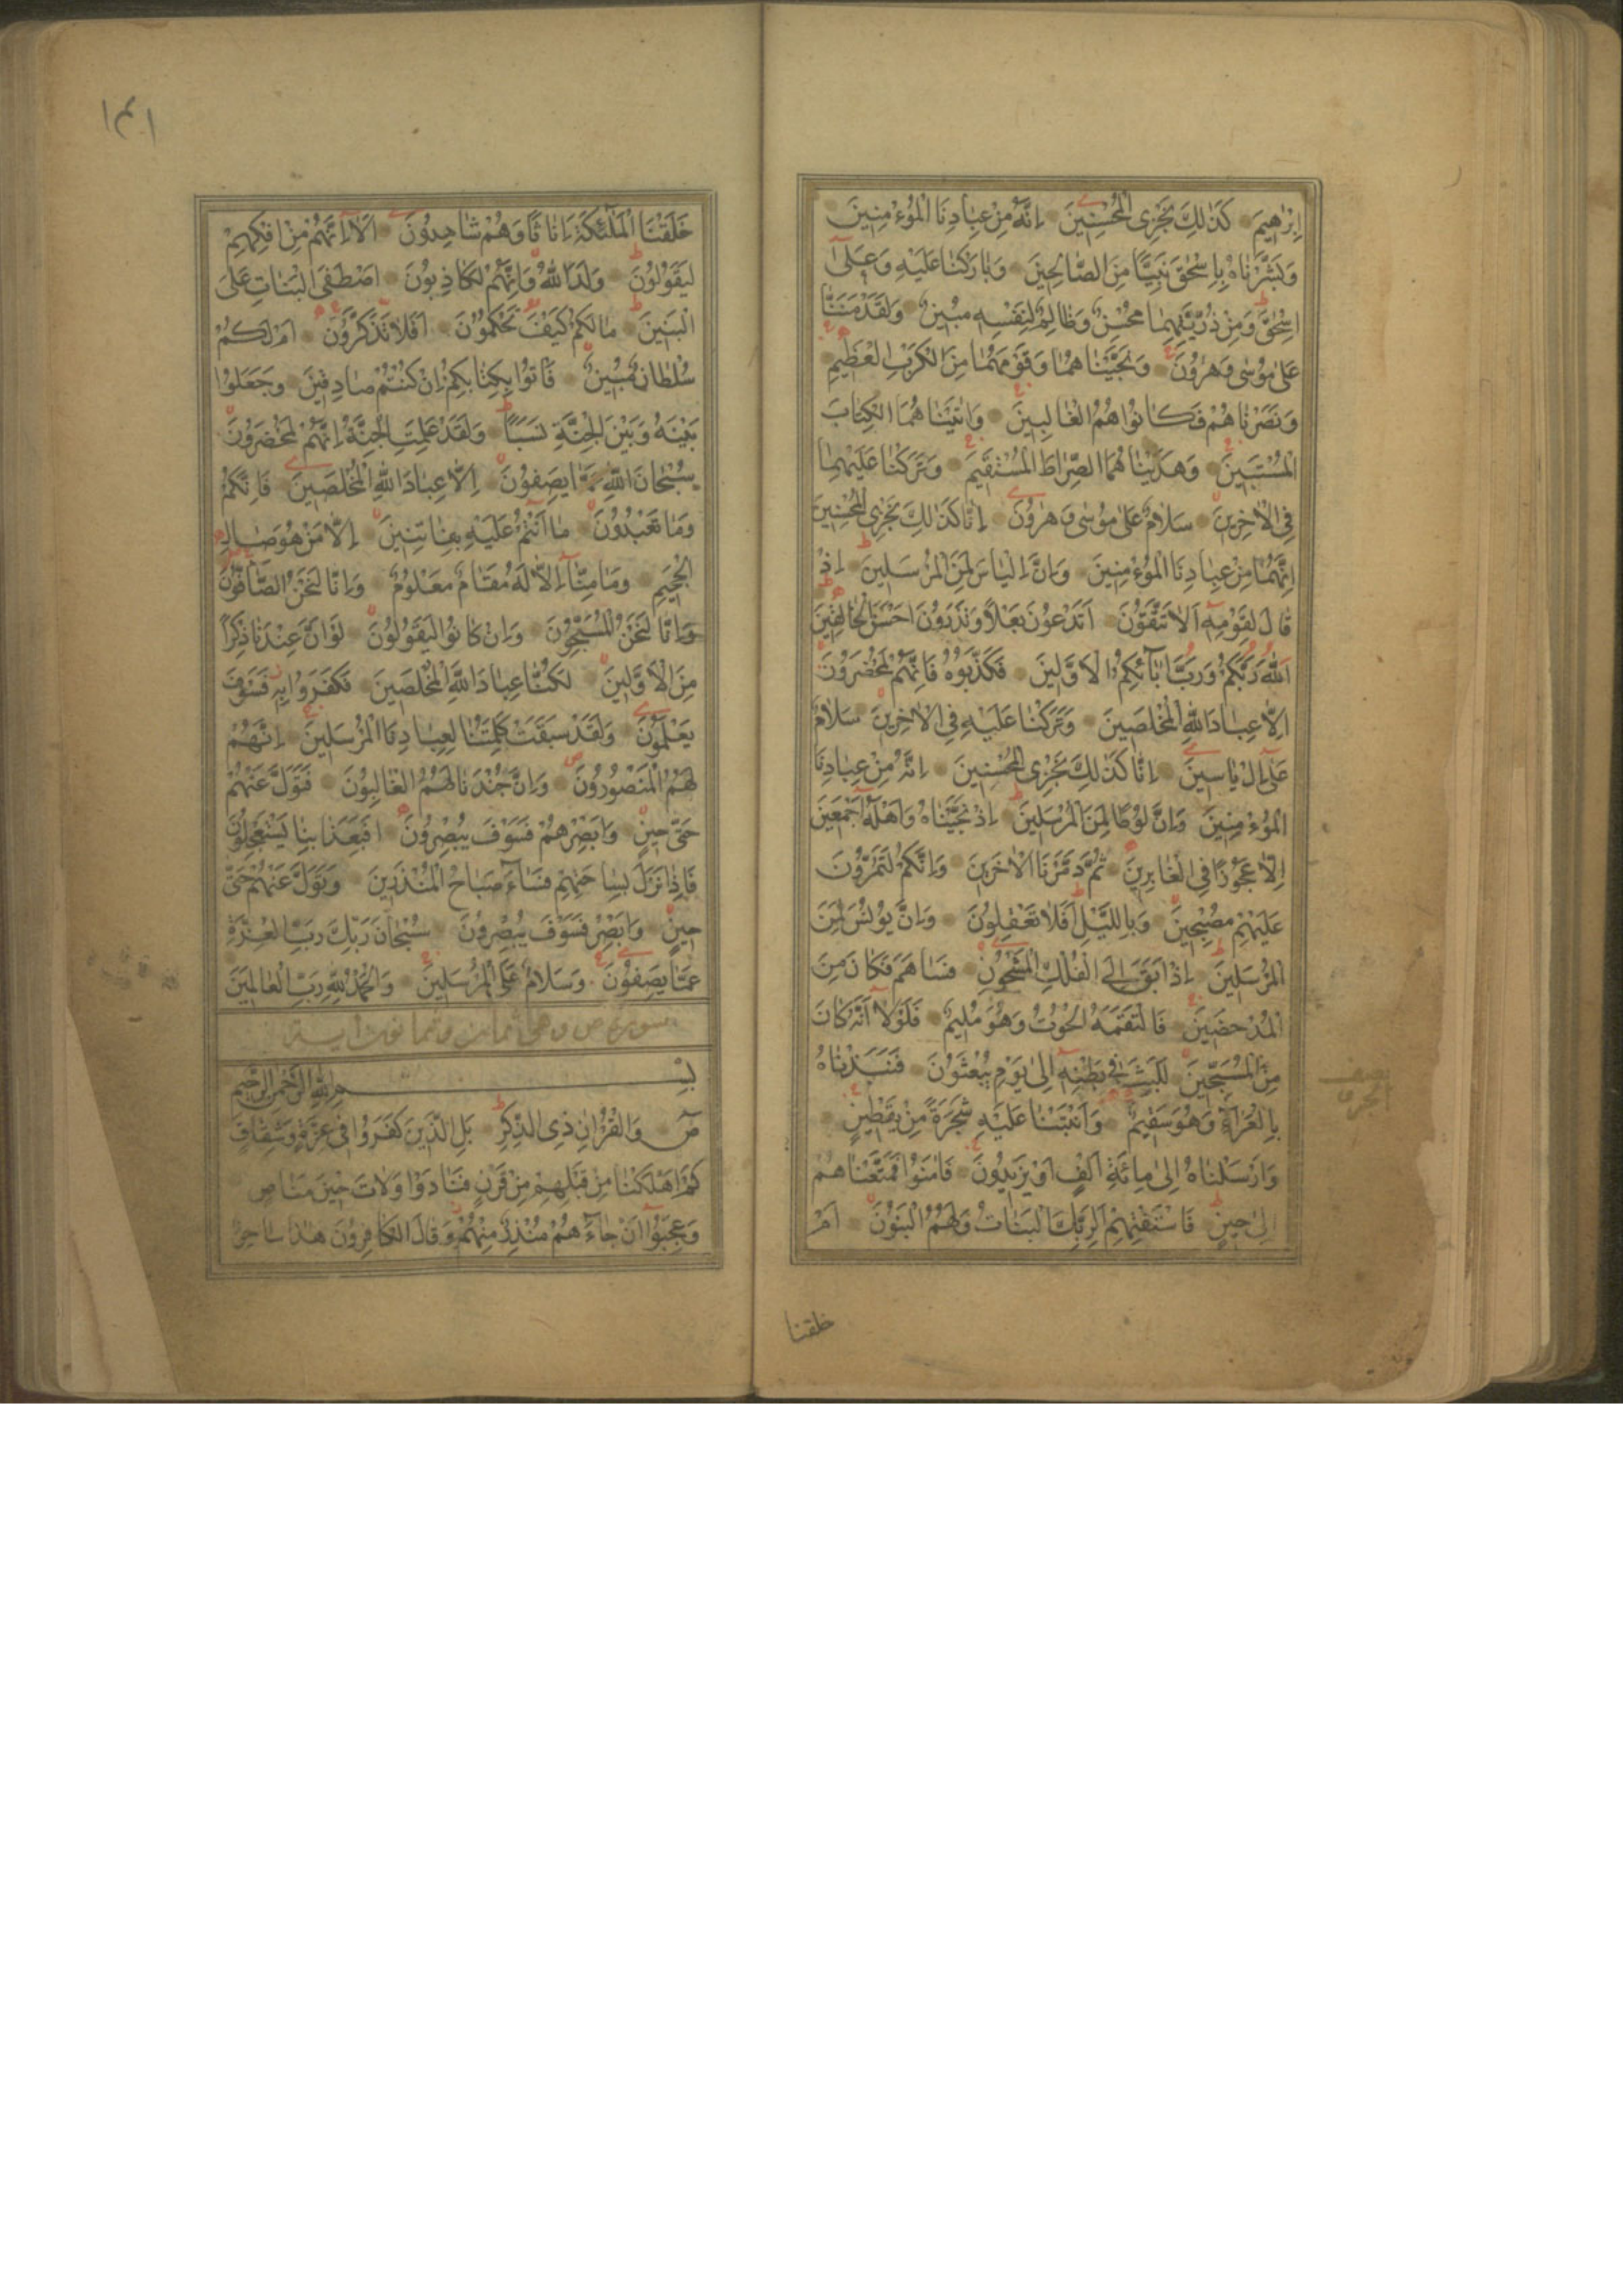 اِبْرٰهِيمَ كَذٰلِكَ نَجْزِى الْمُحْسِنِينَ اِنَّهُ مِنْ عِبَادِنَا الْمُؤْمِنِينَ
وَبَشَّرْنَاهُ بِاِسْحٰقَ نَبِيًّا مِنَ الصَّالِحِينَ وَبَارَكْنَا عَلَيْهِ وَعَلٰى
اِسْحٰقَ وَمِنْ ذُرِّيَّتِهِمَا مُحْسِنٌ وَظَالِمٌ لِنَفْسِهِ مُبِينٌ وَلَقَدْ مَنَنَّا
عَلٰى مُوسٰى وَهٰرُونَ وَنَجَّيْنَاهُمَا وَقَوْمَهُمَا مِنَ الْكَرْبِ الْعَظِيمِ
وَنَصَرْنَاهُمْ فَكَانُوا هُمُ الْغَالِبِينَ وَاٰتَيْنَاهُمَا الْكِتَابَ
الْمُسْتَبِينَ وَهَدَيْنَاهُمَا الصِّرَاطَ الْمُسْتَقِيمَ وَتَرَكْنَا عَلَيْهِمَا
فِى الْاٰخِرِينَ سَلَامٌ عَلٰى مُوسٰى وَهٰرُونَ اِنَّا كَذٰلِكَ نَجْزِى الْمُحْسِنِينَ
اِنَّهُمَا مِنْ عِبَادِنَا الْمُؤْمِنِينَ وَاِنَّ اِلْيَاسَ لَمِنَ الْمُرْسَلِينَ اِذْ
قَالَ لِقَوْمِهِ اَلَا تَتَّقُونَ اَتَدْعُونَ بَعْلًا وَتَذَرُونَ اَحْسَنَ الْخَالِقِينَ
اَللّٰهَ رَبَّكُمْ وَرَبَّ اٰبَآئِكُمُ الْاَوَّلِينَ فَكَذَّبُوهُ فَاِنَّهُمْ لَمُحْضَرُونَ
اِلَّا عِبَادَ اللّٰهِ الْمُخْلَصِينَ وَتَرَكْنَا عَلَيْهِ فِى الْاٰخِرِينَ سَلَامٌ
عَلٰى اِلْ يَاسِينَ اِنَّا كَذٰلِكَ نَجْزِى الْمُحْسِنِينَ اِنَّهُ مِنْ عِبَادِنَا
الْمُؤْمِنِينَ وَاِنَّ لُوطًا لَمِنَ الْمُرْسَلِينَ اِذْ نَجَّيْنَاهُ وَاَهْلَهُ اَجْمَعِينَ
اِلَّا عَجُوزًا فِى الْغَابِرِينَ ثُمَّ دَمَّرْنَا الْاٰخَرِينَ وَاِنَّكُمْ لَتَمُرُّونَ
عَلَيْهِمْ مُصْبِحِينَ وَبِالَّيْلِ اَفَلَا تَعْقِلُونَ وَاِنَّ يُونُسَ لَمِنَ
الْمُرْسَلِينَ اِذْ اَبَقَ اِلَى الْفُلْكِ الْمَشْحُونِ فَسَاهَمَ فَكَانَ مِنَ
الْمُدْحَضِينَ فَالْتَقَمَهُ الْحُوتُ وَهُوَ مُلِيمٌ فَلَوْلَا اَنَّهُ كَانَ
مِنَ الْمُسَبِّحِينَ لَلَبِثَ فِى بَطْنِهِ اِلٰى يَوْمِ يُبْعَثُونَ فَنَبَذْنَاهُ
بِالْعَرَآءِ وَهُوَ سَقِيمٌ وَاَنْبَتْنَا عَلَيْهِ شَجَرَةً مِنْ يَقْطِينٍ
وَاَرْسَلْنَاهُ اِلٰى مِائَةِ اَلْفٍ اَوْ يَزِيدُونَ فَاٰمَنُوا فَمَتَّعْنَاهُمْ
اِلٰى حِينٍ فَاسْتَفْتِهِمْ اَلِرَبِّكَ الْبَنَاتُ وَلَهُمُ الْبَنُونَ اَمْ
خلقنا
١٤١
خَلَقْنَا الْمَلٰٓئِكَةَ اِنَاثًا وَهُمْ شَاهِدُونَ اَلَا اِنَّهُمْ مِنْ اِفْكِهِمْ
لَيَقُولُونَ وَلَدَ اللّٰهُ وَاِنَّهُمْ لَكَاذِبُونَ اَصْطَفَى الْبَنَاتِ عَلَى
الْبَنِينَ مَا لَكُمْ كَيْفَ تَحْكُمُونَ اَفَلَا تَذَكَّرُونَ اَمْ لَكُمْ
سُلْطَانٌ مُبِينٌ فَاْتُوا بِكِتَابِكُمْ اِنْ كُنْتُمْ صَادِقِينَ وَجَعَلُوا
بَيْنَهُ وَبَيْنَ الْجِنَّةِ نَسَبًا وَلَقَدْ عَلِمَتِ الْجِنَّةُ اِنَّهُمْ لَمُحْضَرُونَ
سُبْحَانَ اللّٰهِ عَمَّا يَصِفُونَ اِلَّا عِبَادَ اللّٰهِ الْمُخْلَصِينَ فَاِنَّكُمْ
وَمَا تَعْبُدُونَ مَا اَنْتُمْ عَلَيْهِ بِفَاتِنِينَ اِلَّا مَنْ هُوَ صَالِ
الْجَحِيمِ وَمَا مِنَّا اِلَّا لَهُ مَقَامٌ مَعْلُومٌ وَاِنَّا لَنَحْنُ الصَّآفُّونَ
وَاِنَّا لَنَحْنُ الْمُسَبِّحُونَ وَاِنْ كَانُوا لَيَقُولُونَ لَوْ اَنَّ عِنْدَنَا ذِكْرًا
مِنَ الْاَوَّلِينَ لَكُنَّا عِبَادَ اللّٰهِ الْمُخْلَصِينَ فَكَفَرُوا بِهِ فَسَوْفَ
يَعْلَمُونَ وَلَقَدْ سَبَقَتْ كَلِمَتُنَا لِعِبَادِنَا الْمُرْسَلِينَ اِنَّهُمْ
لَهُمُ الْمَنْصُورُونَ وَاِنَّ جُنْدَنَا لَهُمُ الْغَالِبُونَ فَتَوَلَّ عَنْهُمْ
حَتّٰى حِينٍ وَاَبْصِرْهُمْ فَسَوْفَ يُبْصِرُونَ اَفَبِعَذَابِنَا يَسْتَعْجِلُونَ
فَاِذَا نَزَلَ بِسَاحَتِهِمْ فَسَآءَ صَبَاحُ الْمُنْذَرِينَ وَتَوَلَّ عَنْهُمْ حَتّٰى
حِينٍ وَاَبْصِرْ فَسَوْفَ يُبْصِرُونَ سُبْحَانَ رَبِّكَ رَبِّ الْعِزَّةِ
عَمَّا يَصِفُونَ وَسَلَامٌ عَلَى الْمُرْسَلِينَ وَالْحَمْدُ لِلّٰهِ رَبِّ الْعَالَمِينَ
سورة ص وهى ثمان وثمانون اية
بِسْمِ اللّٰهِ الرَّحْمٰنِ الرَّحِيمِ
صٓ وَالْقُرْاٰنِ ذِى الذِّكْرِ بَلِ الَّذِينَ كَفَرُوا فِى عِزَّةٍ وَشِقَاقٍ
كَمْ اَهْلَكْنَا مِنْ قَبْلِهِمْ مِنْ قَرْنٍ فَنَادَوْا وَلَاتَ حِينَ مَنَاصٍ
وَعَجِبُوا اَنْ جَآءَهُمْ مُنْذِرٌ مِنْهُمْ وَقَالَ الْكَافِرُونَ هٰذَا سَاحِرٌ